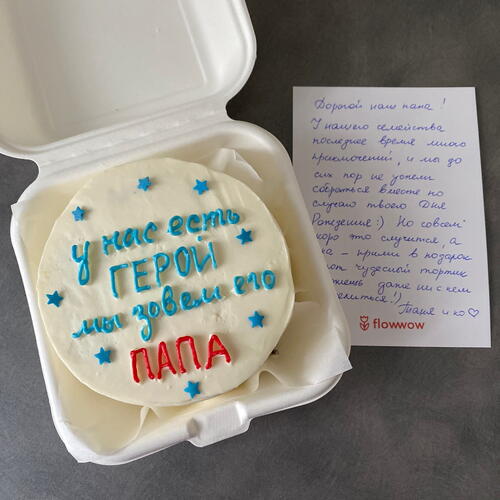 у нас есть
ГЕРОЙ
мы зовем его
ПАПА
Дорогой наш папа!
У нашего семейства
последнее время много
приключений, и мы до
сих пор не успели
собраться вместе по
случаю твоего Дня
Рождения:) Но совсем
скоро это случится, а
прими в подарок
чудесный тортик
даже ни с кем
Таше и ко♡
flowwow